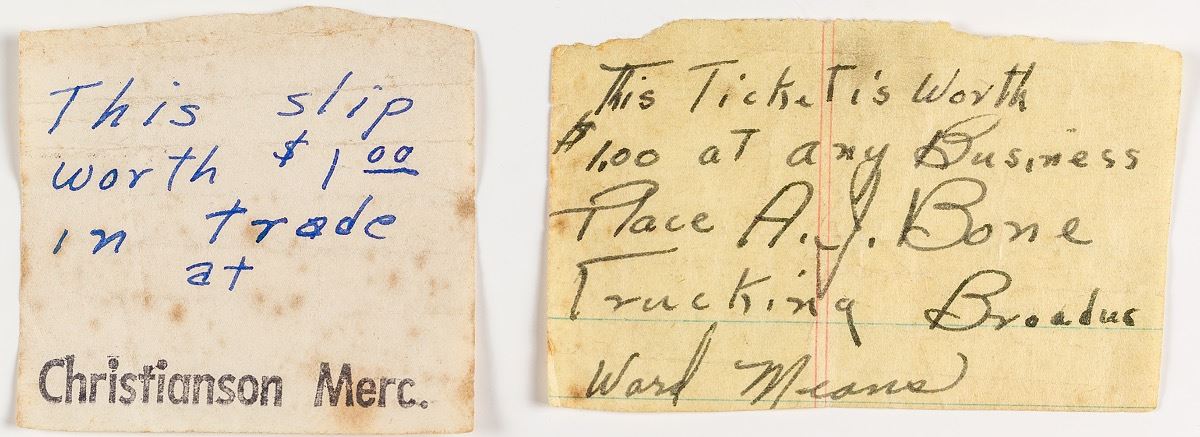 This slip
worth $1.00
in trade
at
Christianson Merc.
This Ticket is Worth
$1.00 at any Business
Place A.J. Bone
Trucking Broadus
Ward Means